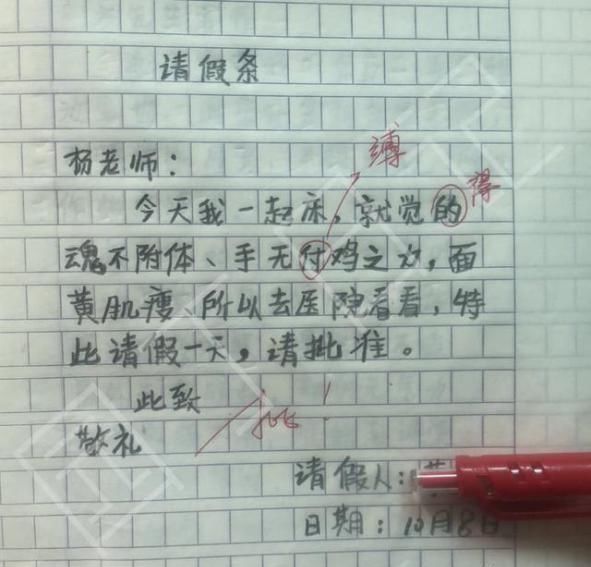 请假条
杨老师：
缚
今天我一起床，就觉的
得
魂不附体、手无付鸡之力，面
黄肌瘦、所以去医院看看，特
此请假一天，请批准。
此致
批！
敬礼
请假人：
日期：10月8日